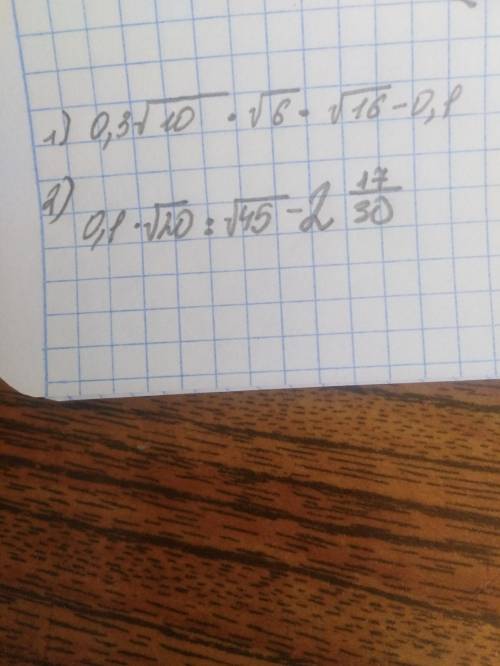 1) 0,3√10 · √6 · √16 - 0,1
2) 0,1 · √20 : √45 - 2 17/30